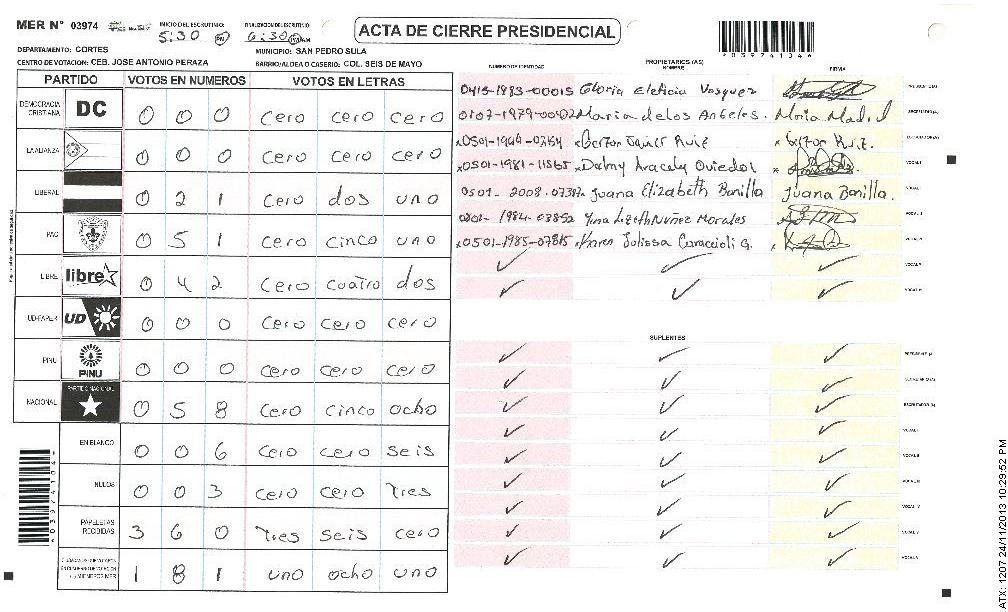 MER N° 03974 INICIO DEL ESCRUTINIO 5:30 PM FINALIZACION DEL ESCRUTINIO 6:30 ACTA DE CIERRE PRESIDENCIAL
DEPARTAMENTO: CORTES MUNICIPIO: SAN PEDRO SULA
CENTRO DE VOTACION: CEB. JOSE ANTONIO PERAZA BARRIO/ALDEA O CASERIO: COL. SEIS DE MAYO
PARTIDO VOTOS EN NUMEROS VOTOS EN LETRAS
DEMOCRACIA CRISTIANA DC 0 0 0 Cero cero cero
LA ALIANZA 0 0 0 Cero cero cero
LIBERAL 0 2 1 Cero dos uno
PAC 0 5 1 Cero cinco uno
LIBRE libre 0 4 2 Cero cuatro dos
UD-FAPER UD 0 0 0 Cero cero cero
PINU PINU 0 0 0 Cero cero cero
NACIONAL PARTIDO NACIONAL 0 5 8 Cero cinco ocho
EN BLANCO 0 0 6 Cero cero seis
NULOS 0 0 3 Cero cero Tres
PAPELETAS RECIBIDAS 3 6 0 Tres seis cero
1 8 1 uno ocho uno
NUMERO DE IDENTIDAD PROPIETARIOS (AS) NOMBRE FIRMA
0415-1983-00015 Gloria Eleticia Vasquez
Maria de los Angeles. Maria Mad
Ruiz
Dalmy Aracely Oviedo
0501-2008-07387 Juana Elizabeth Bonilla Juana Bonilla.
Lizeth Nuñez Morales
0501-1985-07815 Karen Julissa Caraccioli G.
SUPLENTES
03974104
ATX: 1207 24/11/2013 10:29:52 PM